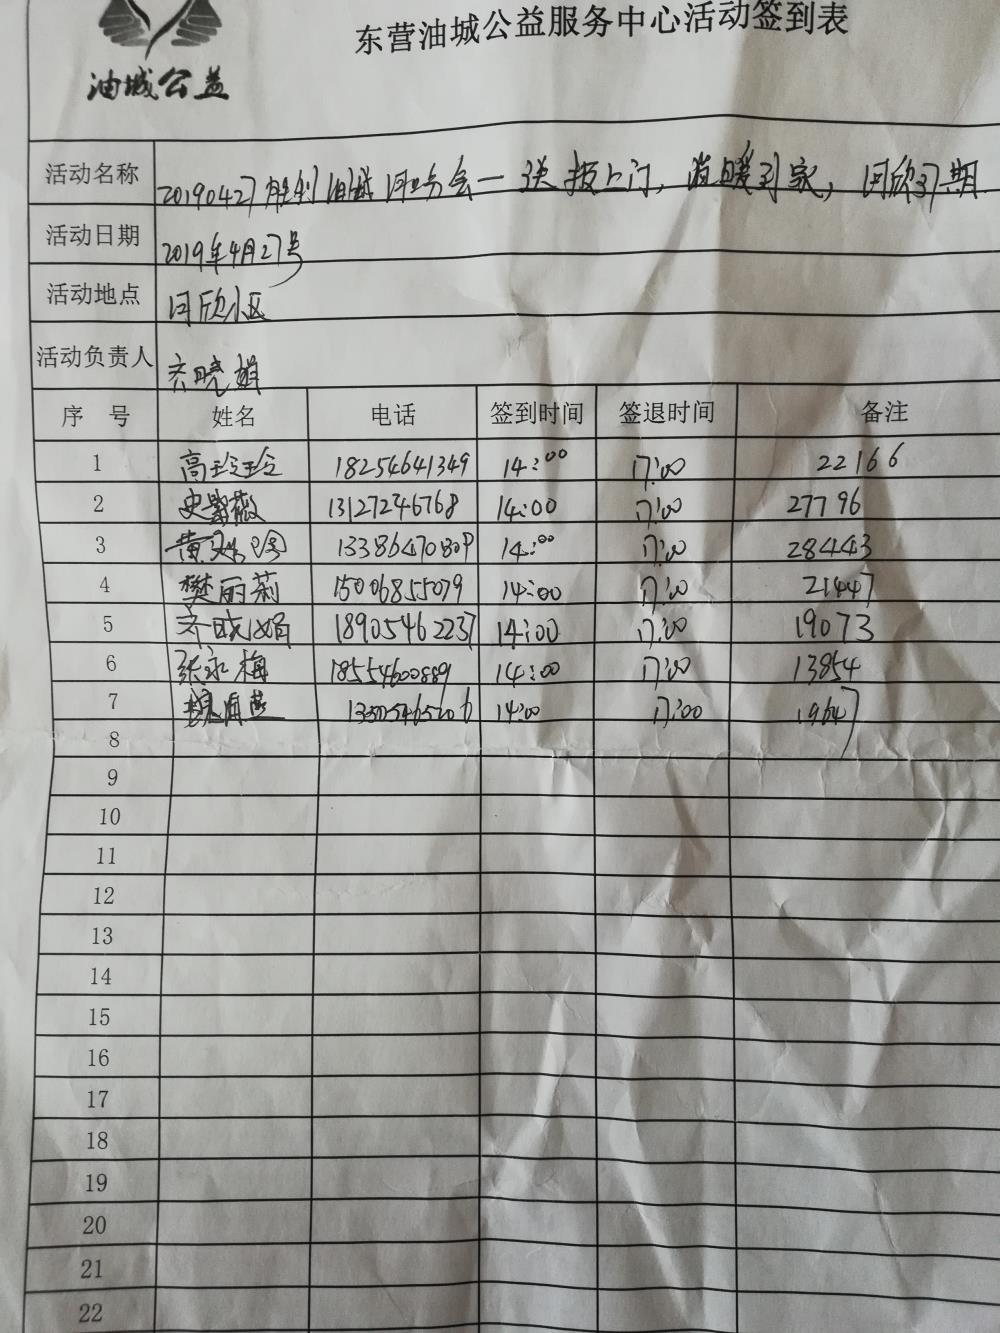 东营油城公益服务中心活动签到表
油城公益
活动名称 20190427胜利油城河口分会一送报上门，送暖到家，河欣37期
活动日期 2019年4月27号
活动地点 河欣小区
活动负责人 齐晓娟
序 号 姓名 电话 签到时间 签退时间 备注
1 高玲玲 18254641349 14:00 17:00 22166
2 史紫薇 13127246768 14:00 17:00 27796
3 黄 13386470809 14:00 17:00 28443
4 樊丽莉 15006855079 14:00 17:00 21447
5 齐晓娟 18905462237 14:00 17:00 19073
6 张永梅 18554600889 14:00 17:00 13854
7 14:00 17:00 19647
8
9
10
11
12
13
14
15
16
17
18
19
20
21
22